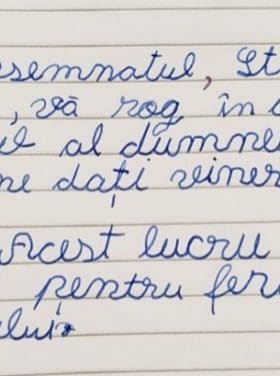 semnatul, St
, vă rog în
al dumne
ne dați viner
Acest lucru
pentru fer
lui.